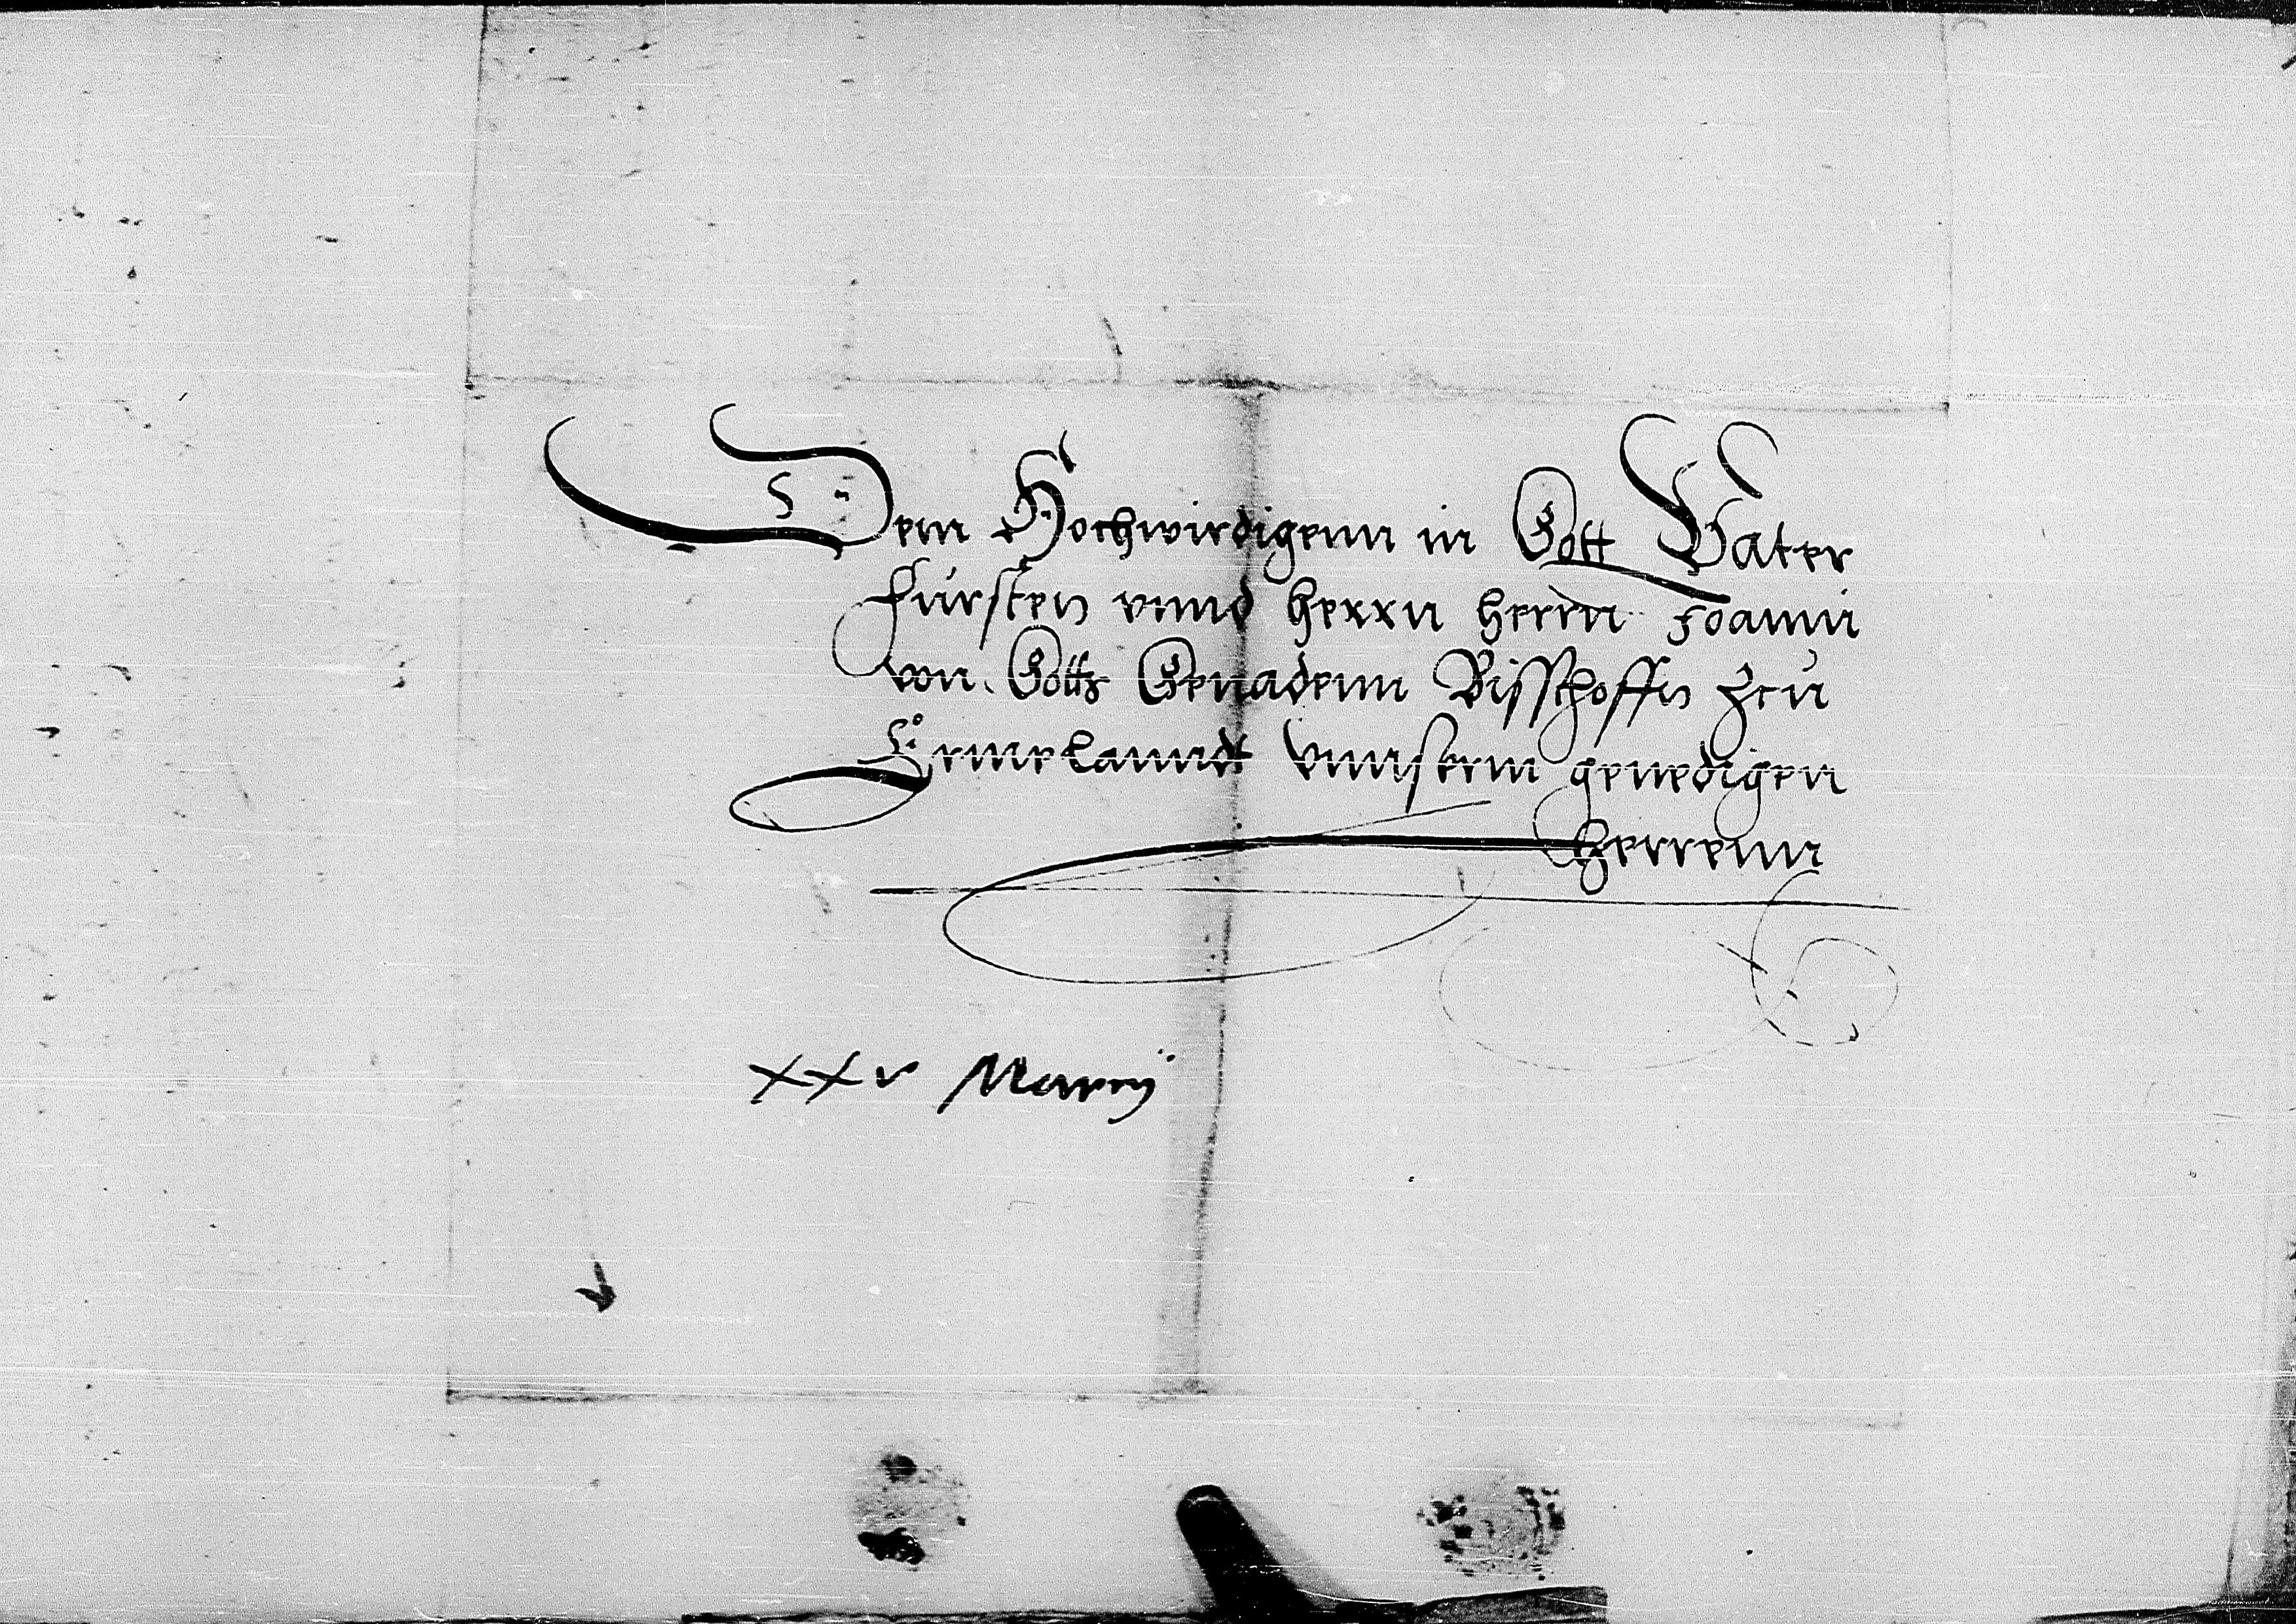 Dem Hochwirdigenn in Gott Vater
Fursten vnnd herrn herrn Joanni
von Gotts Genadenn Bisschoffn zcu
Ermelanndt vnnserm genedigen
herrenn
xxv Marcij